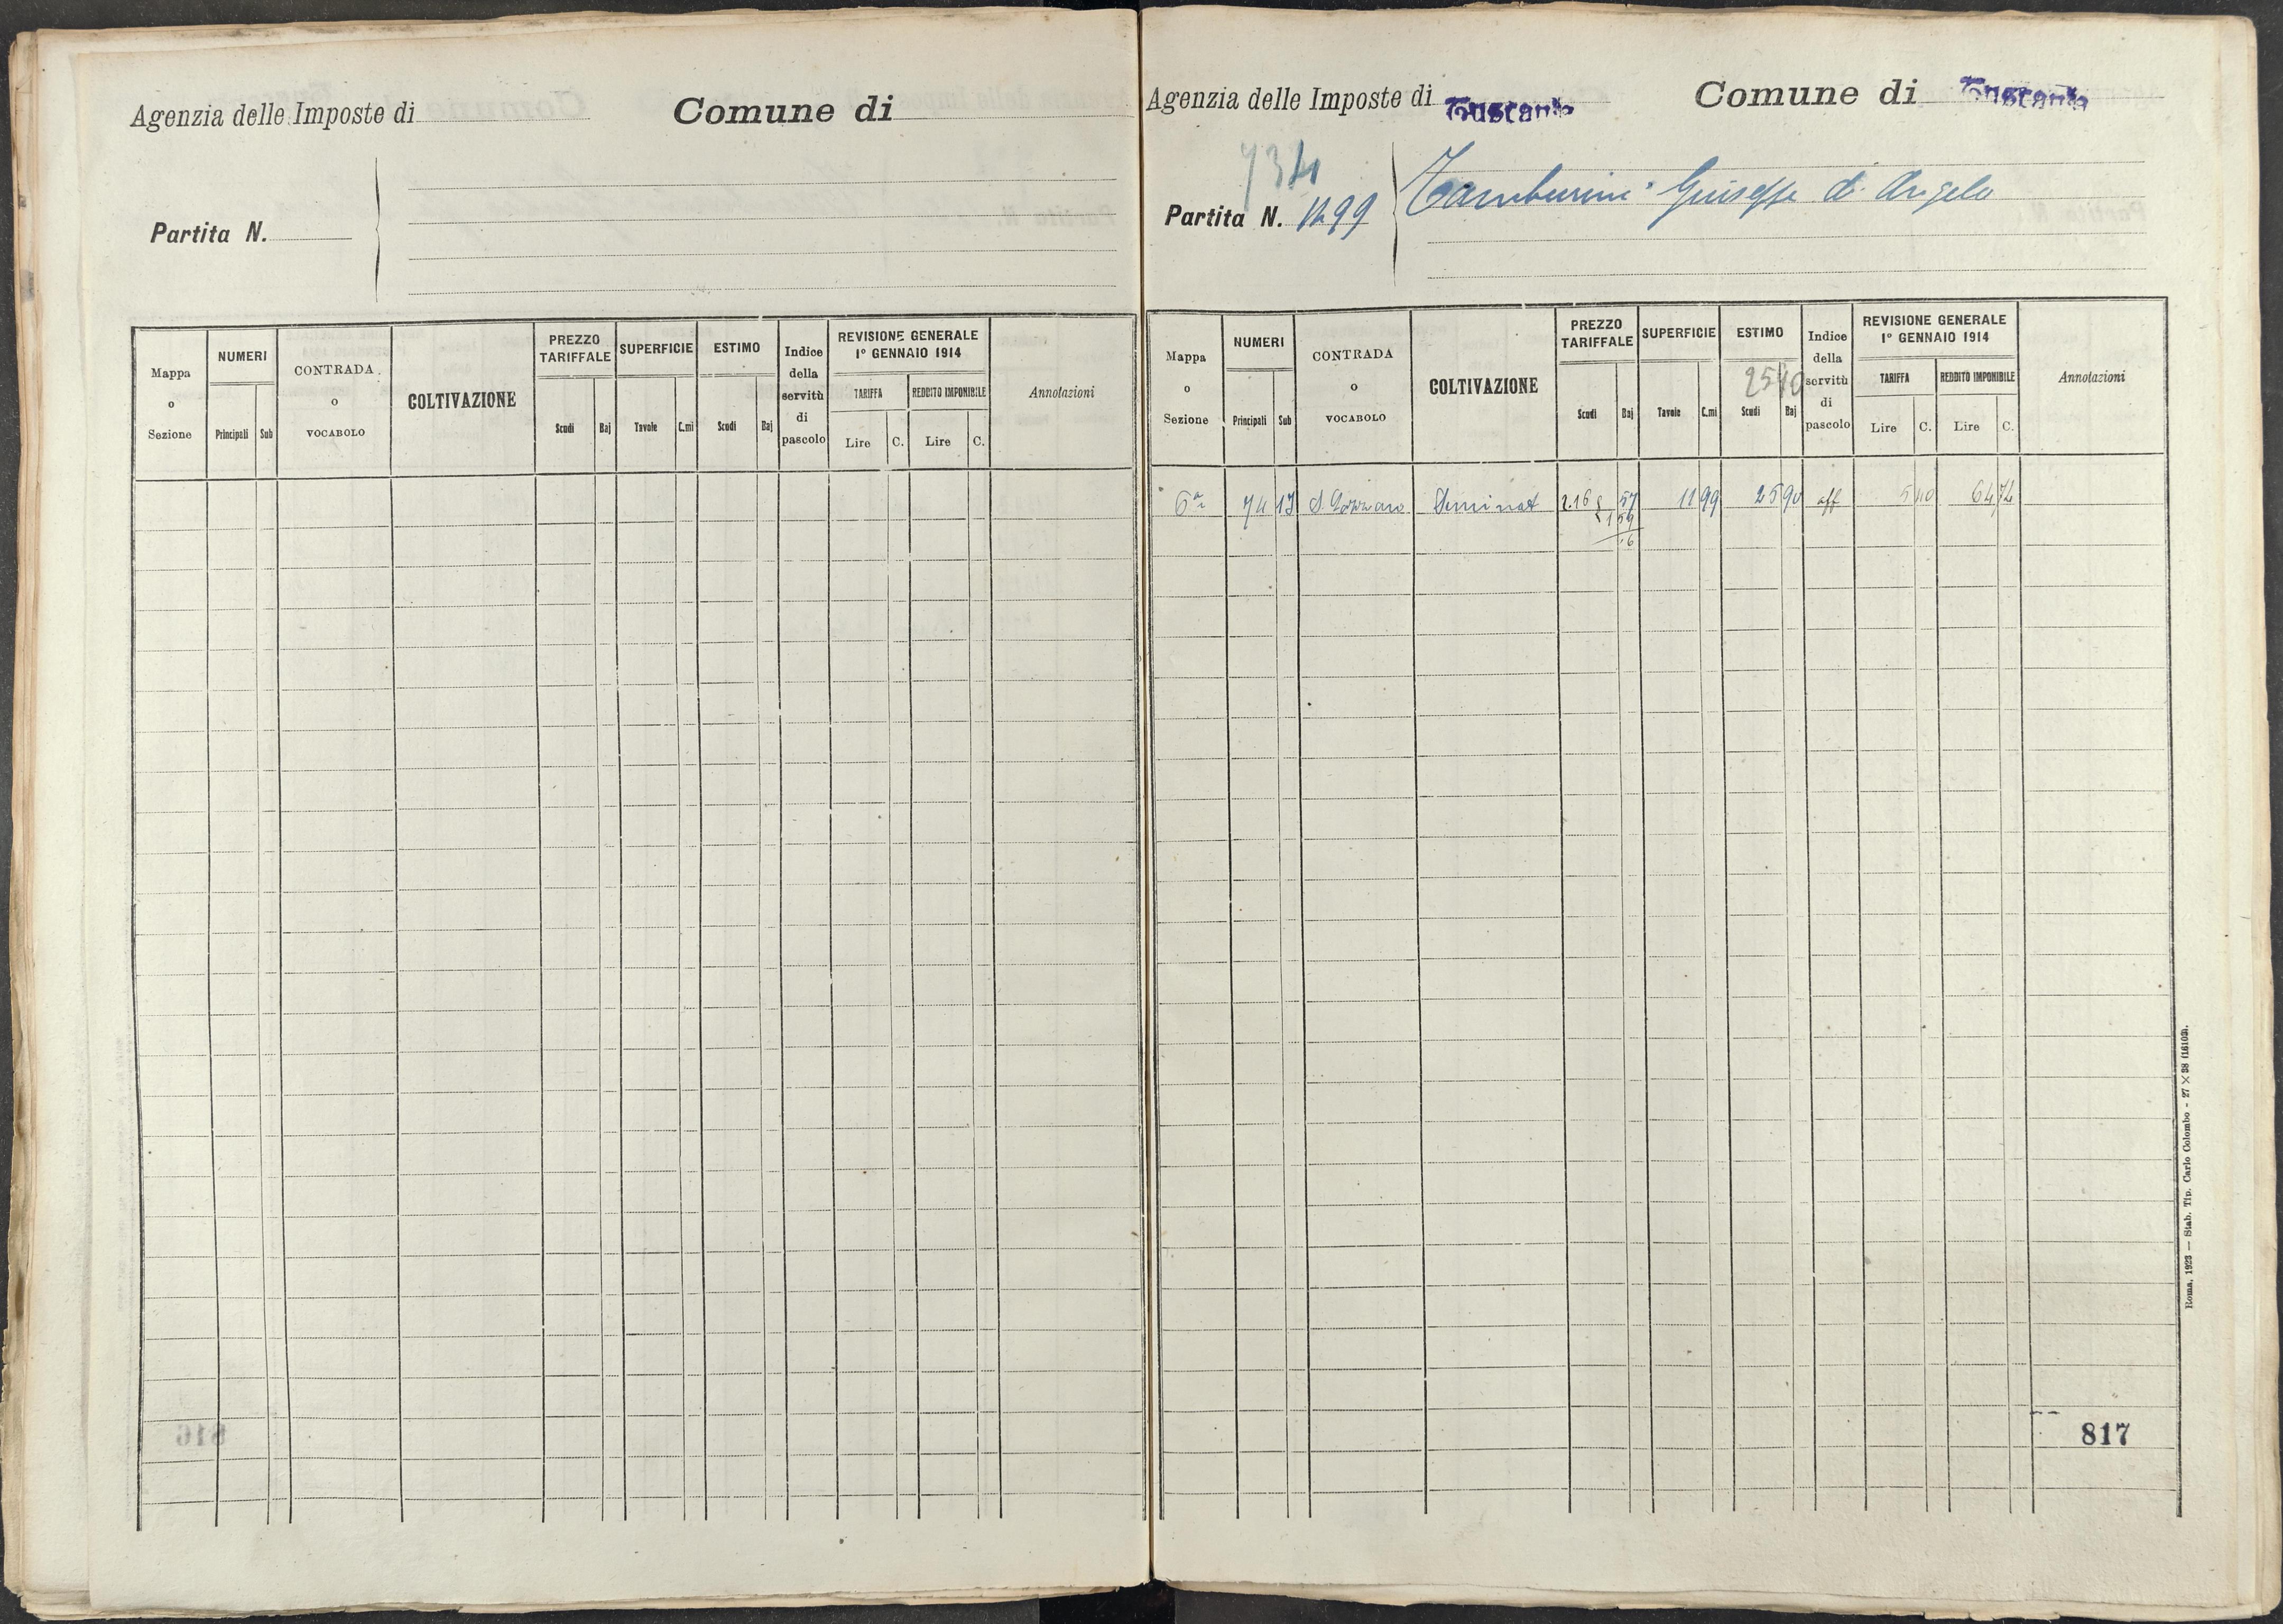 Agenzia delle Imposte di
Comune di
Partita N.
Mappa o Sezione
NUMERI
Principali Sub
CONTRADA o VOCABOLO
COLTIVAZIONE
PREZZO TARIFFALE
Scudi Baj
SUPERFICIE
Tavole C.mi
ESTIMO
Scudi Baj
Indice della servitù di pascolo
REVISIONE GENERALE 1° GENNAIO 1914
TARIFFA
Lire C.
REDDITO IMPONIBILE
Lire C.
Annotazioni
816
Agenzia delle Imposte di Tuscania
Comune di Tuscania
734
Partita N. 1299
Tamburini Giuseppe di Angelo
Mappa o Sezione
NUMERI
Principali Sub
CONTRADA o VOCABOLO
COLTIVAZIONE
PREZZO TARIFFALE
Scudi Baj
SUPERFICIE
Tavole C.mi
ESTIMO
2590
Scudi Baj
Indice della servitù di pascolo
REVISIONE GENERALE 1° GENNAIO 1914
TARIFFA
Lire C.
REDDITO IMPONIBILE
Lire C.
Annotazioni
6ª 74 13 S. Lazzaro Seminat 2.16 57 11 99 25 90 aff 5 40 64 74
817
Roma, 1923 — Stab. Tip. Carlo Colombo - 27 × 38 (16103).